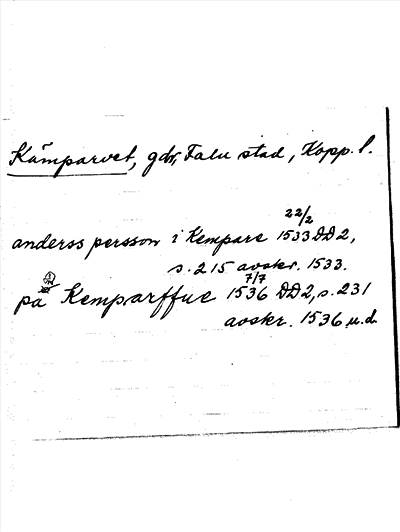 Kämparvet, gdr, Falu stad, Kopp. l.
22/2
anderss persson i Kempare 1533 DD2,
s. 215 avskr. 1533.
7/7
på Kemparffue 1536 DD2, s. 231
avskr. 1536 u.d.